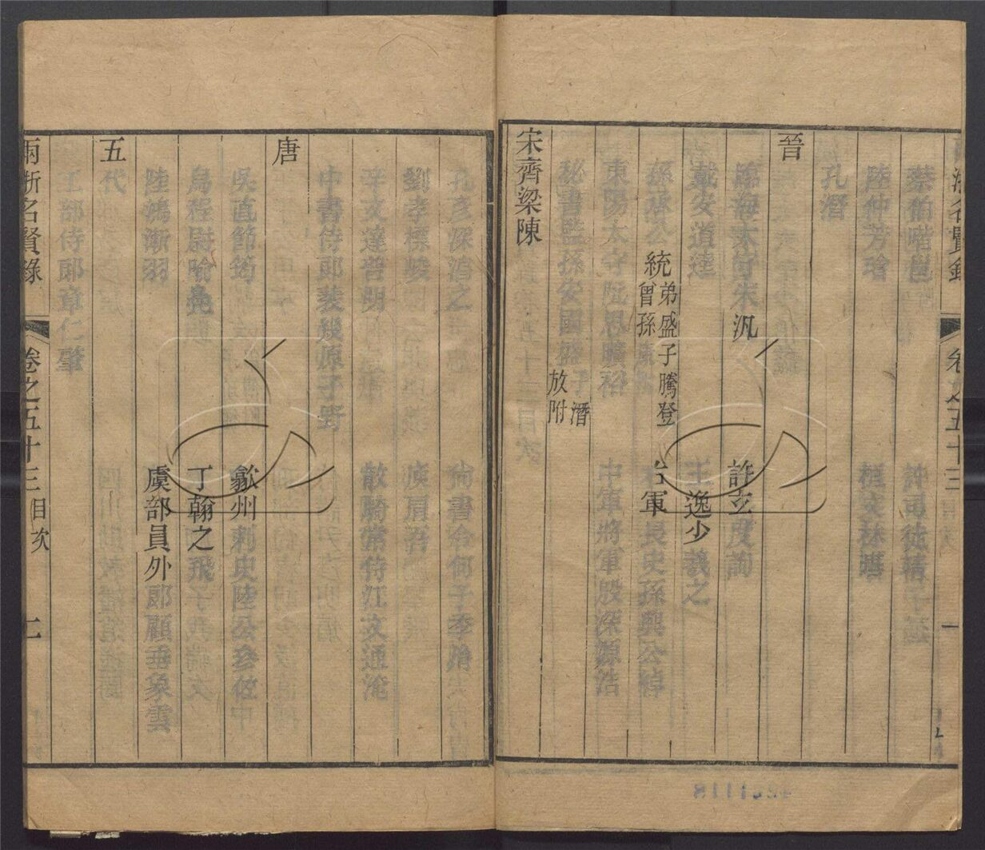 浙名賢錄 卷之五十三 一
蔡伯喈邕
陸仲芳 桓文林曄
孔潛
晉
臨海太守朱汎 許玄度詢
戴安道逵 王逸少羲之
孫承公統 弟盛子騰登曾孫 右軍長史孫興公綽
東陽太守阮思曠裕 中軍將軍殷深源浩
秘書監孫安國盛 子潛放附
宋齊梁陳
孔彥深淳之 尚書令何子季
劉孝標峻 庾肩吾
辛文達普明 散騎常侍江文通淹
中書侍郎裴幾原子野
唐
吳貞節筠 歙州刺史陸公參佐
烏程尉喻鳧 丁翰之飛子
陸鴻漸羽 虞部員外郎顧垂象雲
五代
工部侍郎章仁肇
兩浙名賢錄 卷之五十三 目次 二